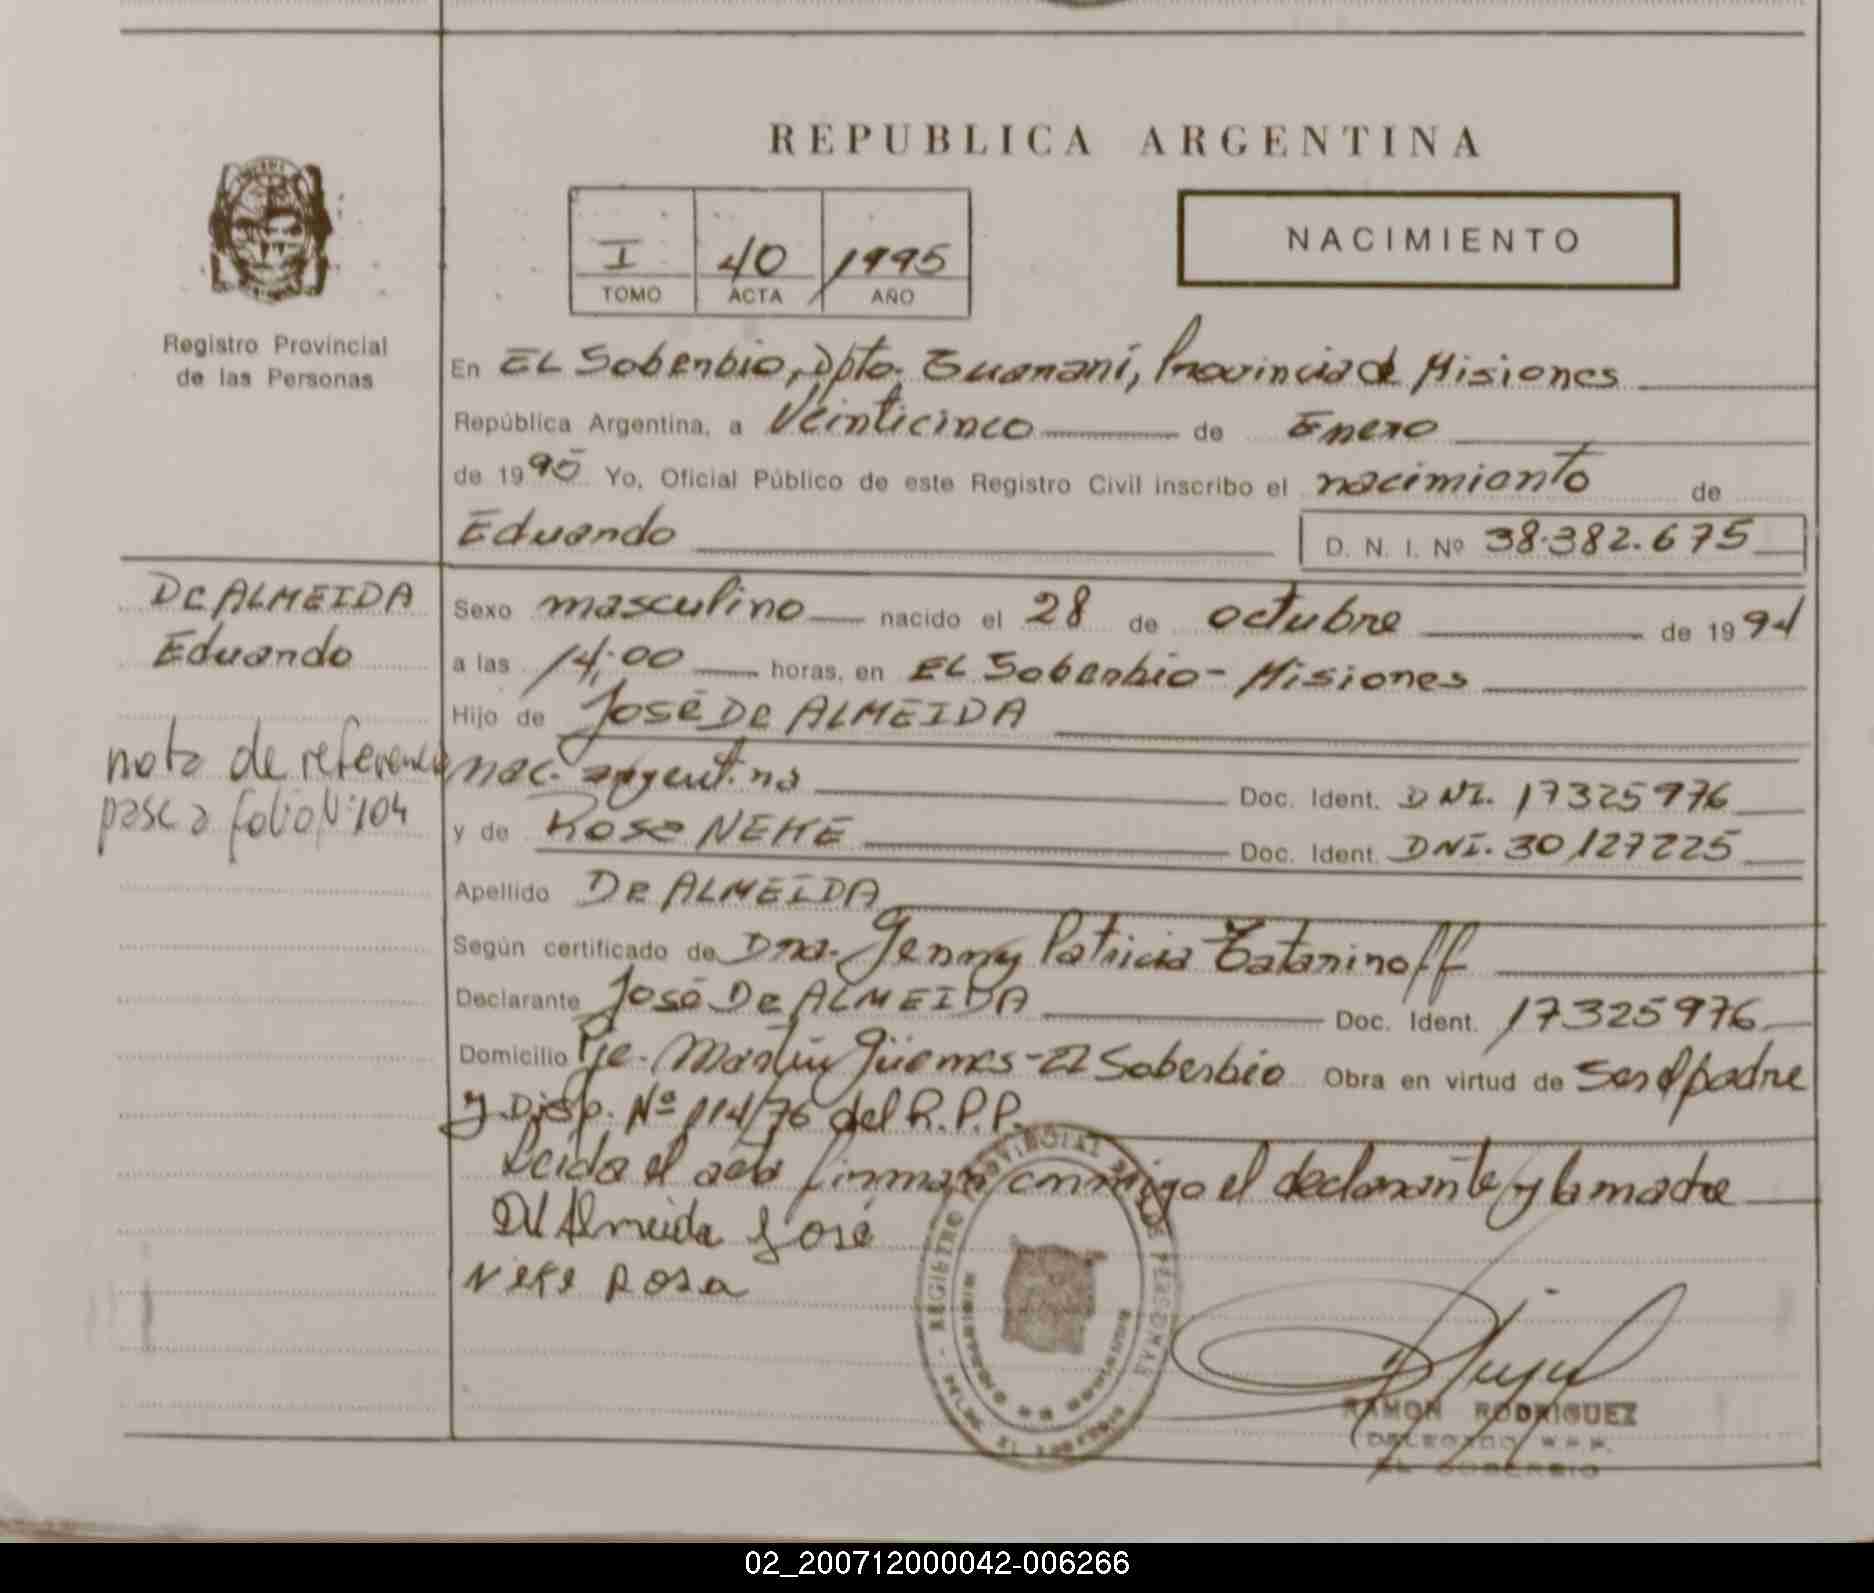 REPUBLICA ARGENTINA
I 40 1995
TOMO ACTA AÑO
NACIMIENTO
Registro Provincial
de las Personas
En EL Soberbio, Dpto. Guaraní, Provincia de Misiones
República Argentina, a Veinticinco de Enero
de 1995 Yo, Oficial Público de este Registro Civil inscribo el nacimiento de
Eduardo D. N. I. Nº 38.382.675
De ALMEIDA
Eduardo
Sexo masculino nacido el 28 de octubre de 1994
a las 14:00 horas, en EL Soberbio - Misiones
Hijo de José De ALMEIDA
nota de referencia
pasc a folio Nº 104
nac. argentina Doc. Ident. DNI. 17325976
y de Rosa NEKE Doc. Ident. DNI. 30127225
Apellido De ALMEIDA
Según certificado de Dra. Jenny Patricia
Declarante José De ALMEIDA Doc. Ident. 17325976
Domicilio Pje. Martín Güemes - El Soberbio Obra en virtud de Ser el padre
y Disp. Nº 114/76 del R.P.P.
Leida el acta firman conmigo el declarante y la madre
De Almeida José
Neke Rosa
REGISTRO PROVINCIAL DE PERSONAS
RAMON RODRIGUEZ
DELEGADO R.P.P.
EL SOBERBIO
02_200712000042-006266